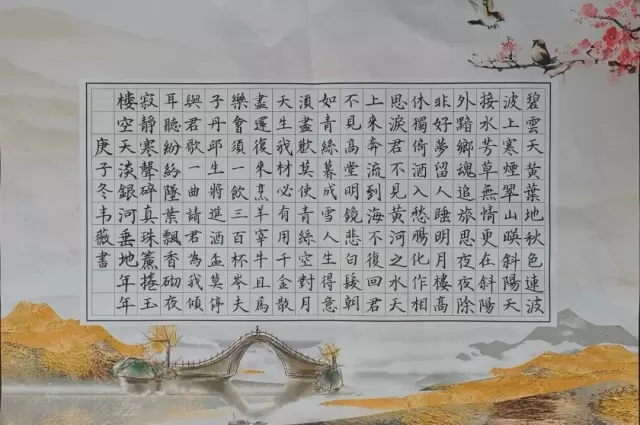 碧雲天黃葉地秋色連波
波上寒煙翠山暎斜陽天
接水芳草無情更在斜陽
外黯鄉魂追旅思夜夜除
非好夢留人睡明月樓高
休獨倚酒入愁腸化作相
思淚君不見黃河之水天
上來奔流到海不復回君
不見高堂明鏡悲白髮朝
如青絲暮成雪人生得意
湏盡歡莫使青絲空對月
天生我材必有用千金散
盡還復來烹羊宰牛且爲
樂會須一飲三百杯岑夫
子丹邱生將進酒盃莫停
與君歌一曲請君為我傾
耳聽紛紛墜葉飄香砌夜
寂靜寒聲碎真珠簾捲玉
楼空天淡銀河垂地年年
庚子冬韦薇書